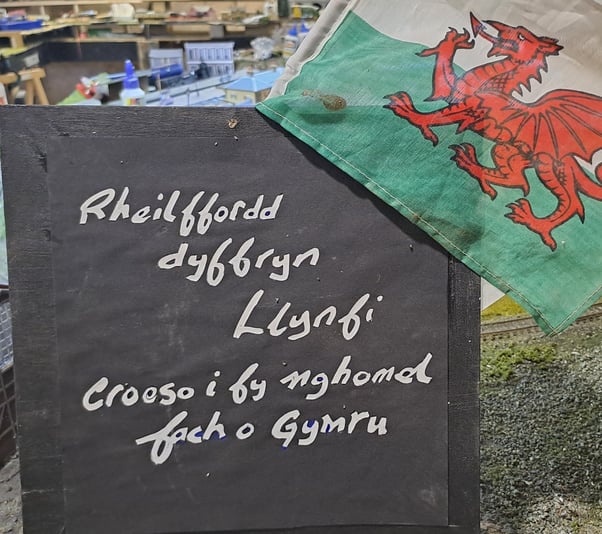 Rheilffordd
dyffryn
Llynfi
Croeso i fy nghornel
fach o Gymru